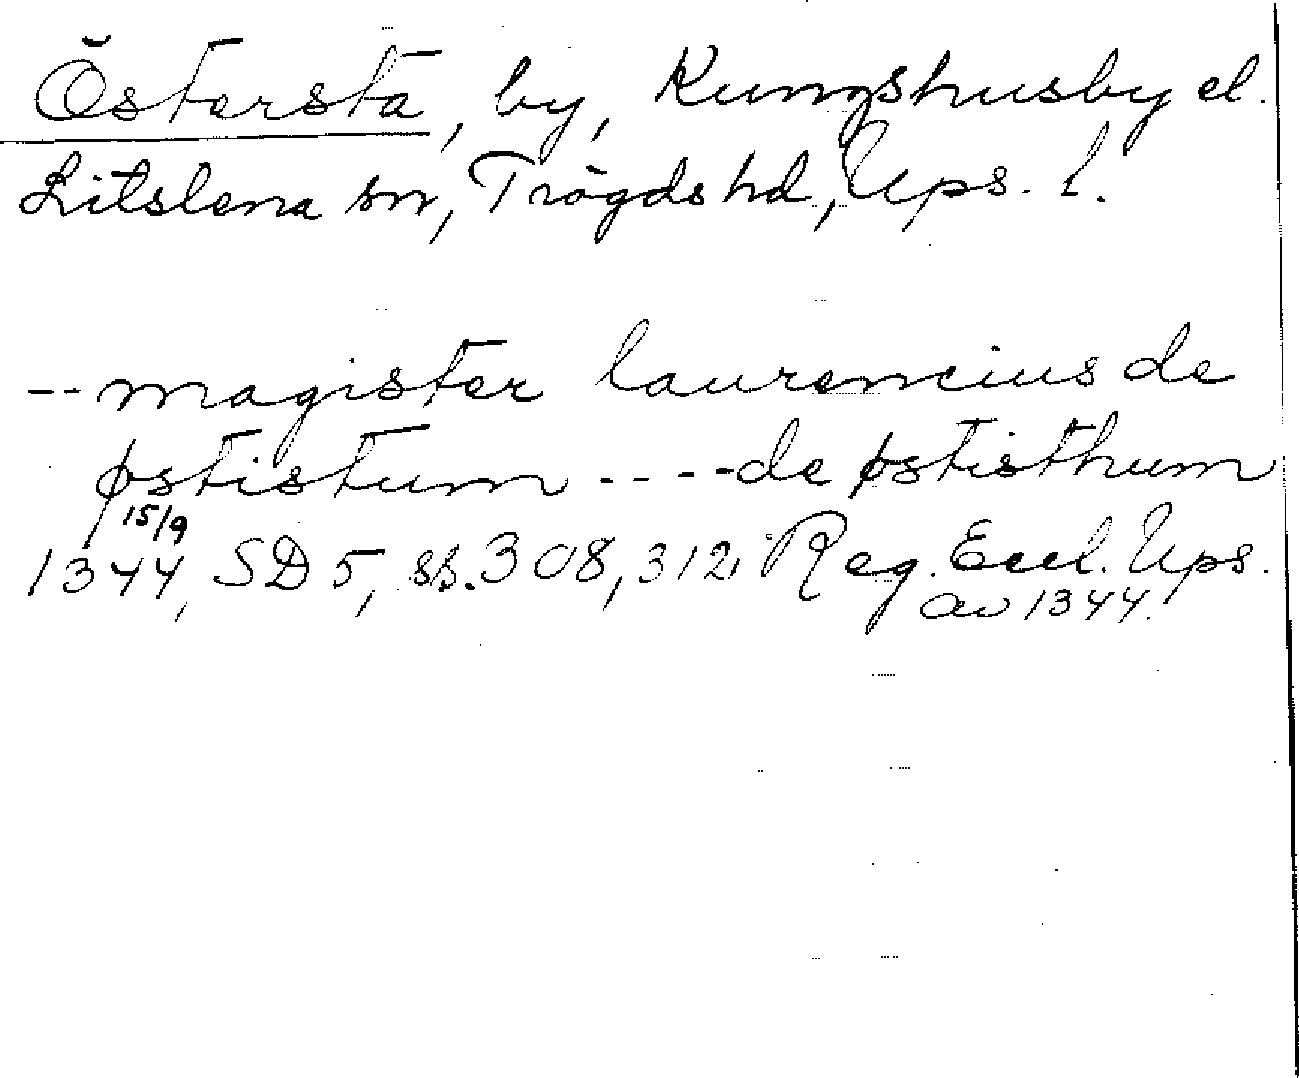 Östersta, by, Kungshusby el.
Litslena sn, Trögds hd, Ups. l.
-- magister laurencius de
østistum ---- de østisthum
15/9
1344, SD 5, ss. 308, 312, Reg. Eccl. Ups.
av 1344.